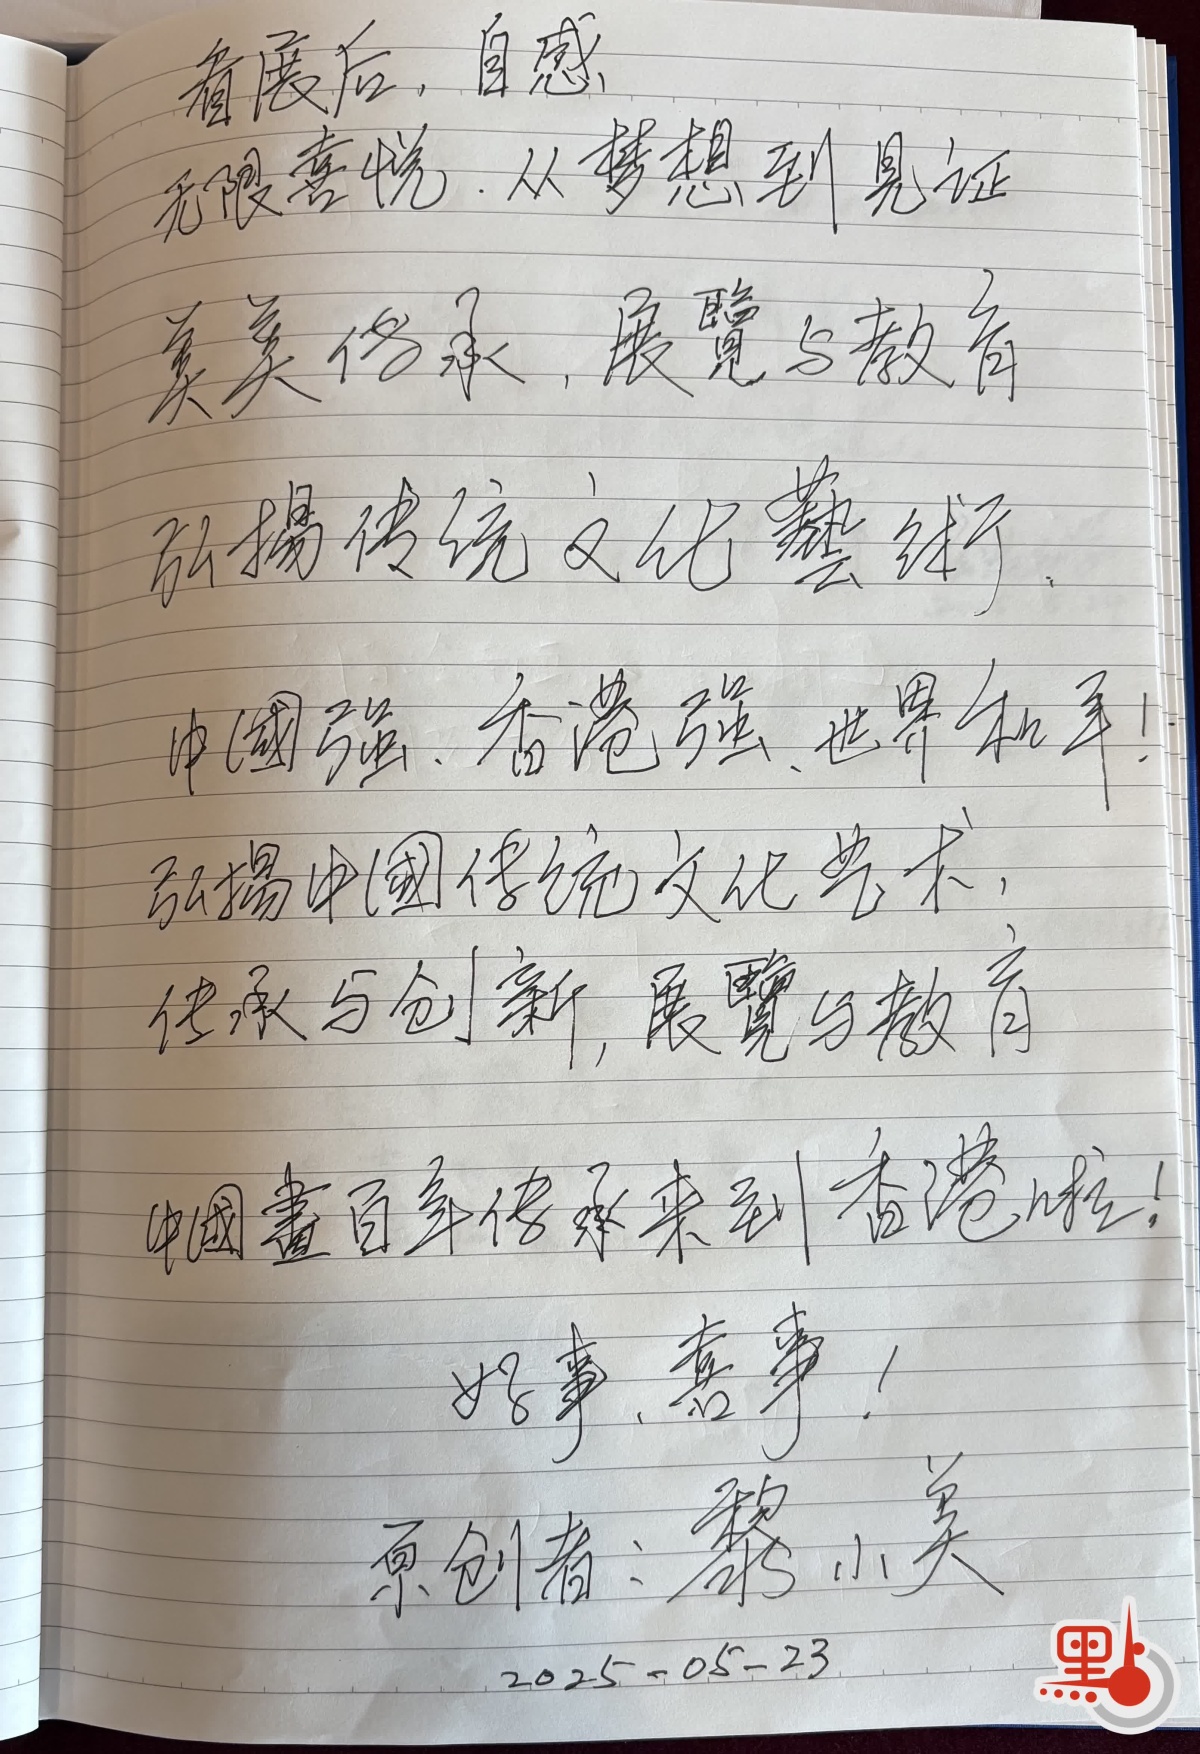 看展后，自感、
无限喜悦．从梦想到见证
美美传承，展覽与教育
弘揚传统文化藝術．
中國强、香港强、世界和平！
弘揚中國传统文化艺术，
传承与创新，展覽与教育
中國畫百年传承来到香港啦！
好事、喜事！
原创者：黎小美
2025-05-23
點